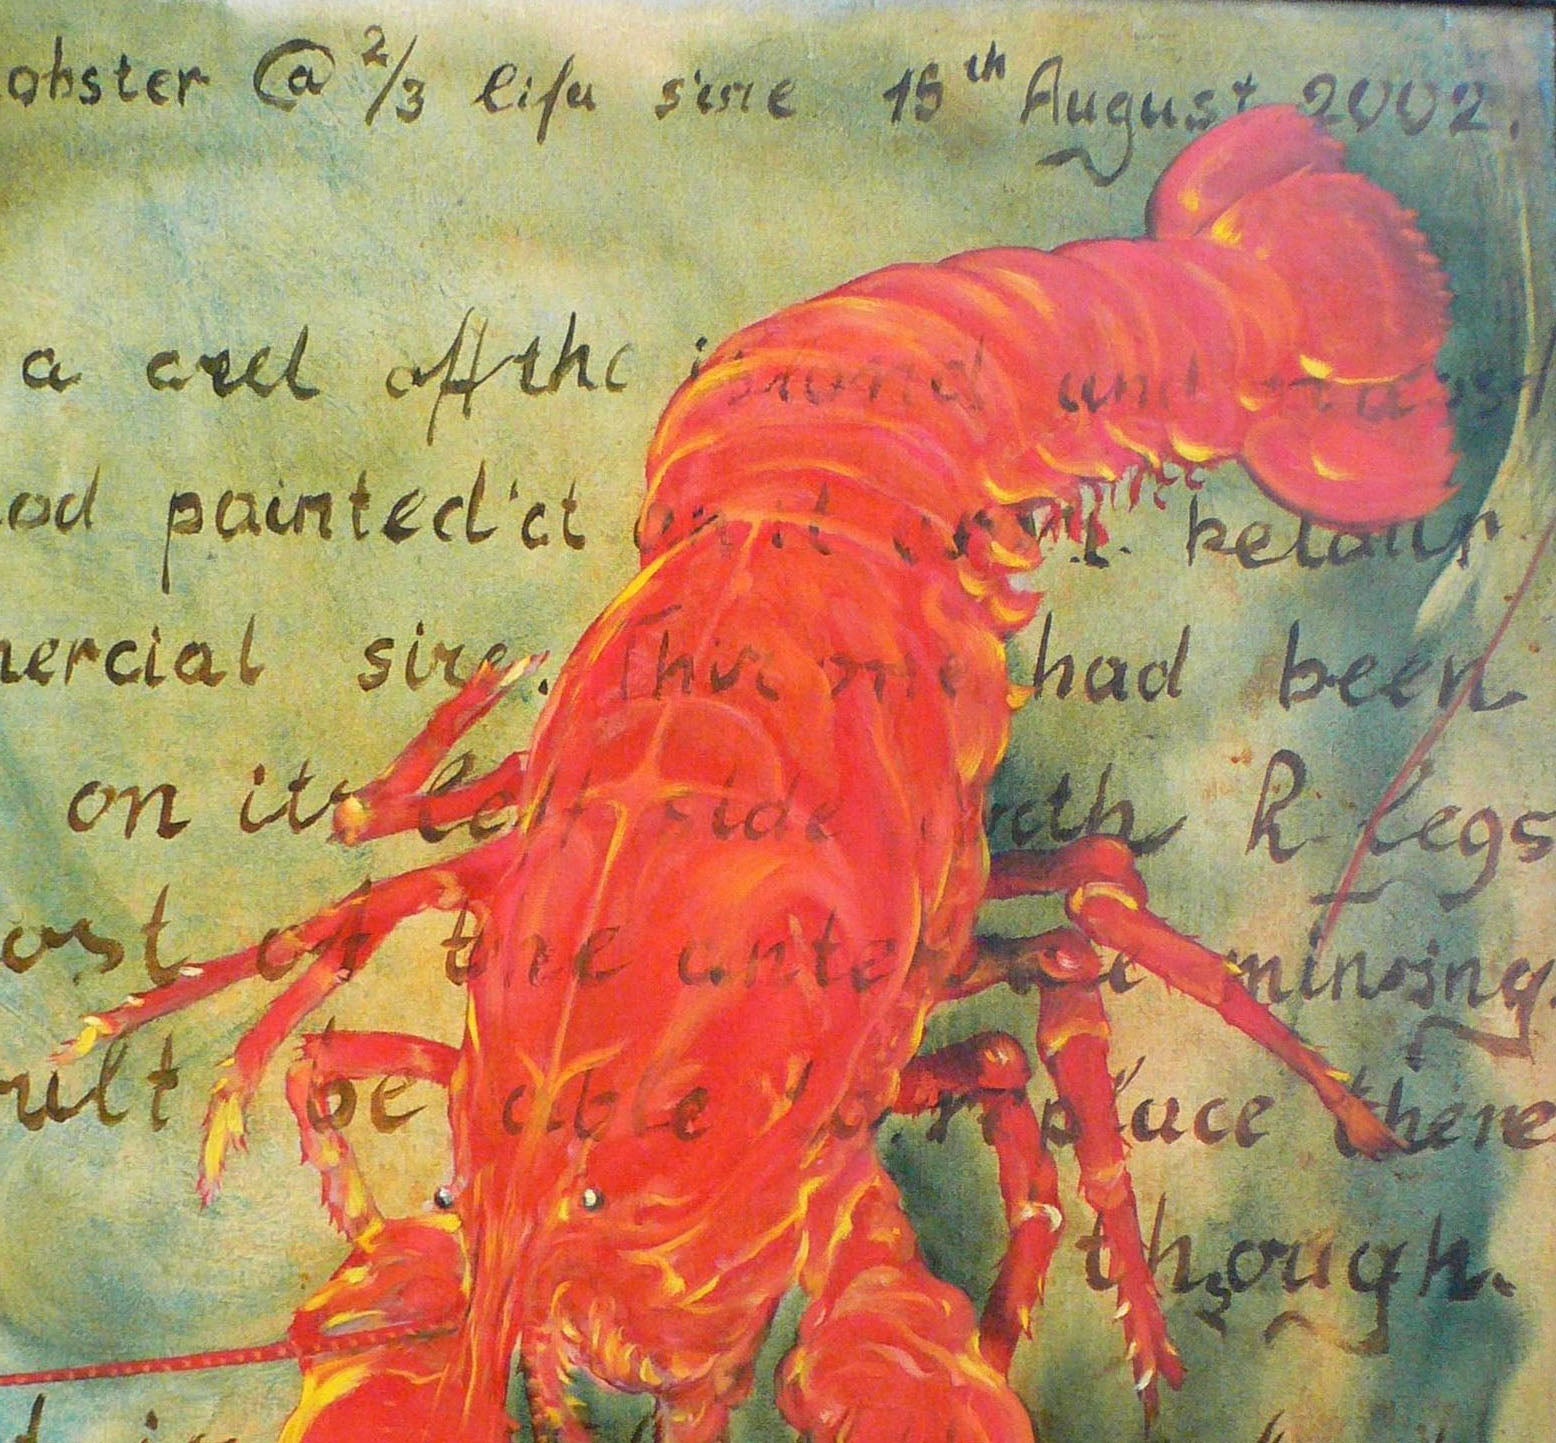 obster @ 2/3 life sire 15th August 2002.
a creel off the island and
od painted it and was below
mercial sire. This one had been
on its left side both R legs
ost of the antennae minsing.
be able to replace there
though.